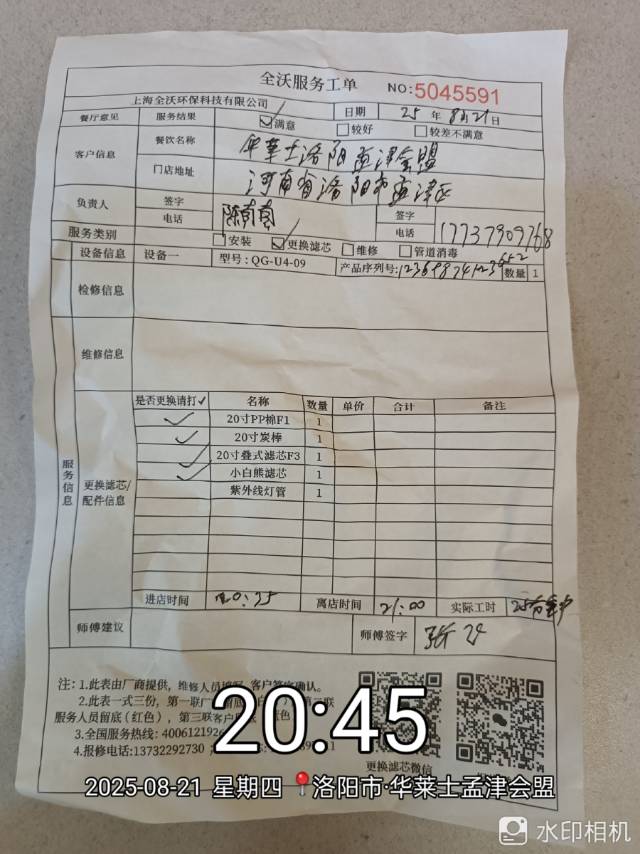 全沃服务工单 NO:5045591
上海全沃环保科技有限公司 日期 25 年 8月21日
餐厅意见 服务结果 ✓满意 □较好 □较差不满意
客户信息 餐饮名称 华莱士洛阳孟津会盟
门店地址 河南省洛阳市孟津区
负责人 签字 签字
电话 电话 17737909768
服务类别 □安装 ✓更换滤芯 □维修 □管道消毒
设备信息 设备一 型号:QG-U4-09 产品序列号: 数量 1
检修信息
维修信息
服务信息
更换滤芯/配件信息
是否更换请打✓ 名称 数量 单价 合计 备注
✓ 20寸PP棉F1 1
✓ 20寸炭棒 1
✓ 20寸叠式滤芯F3 1
✓ 小白熊滤芯 1
紫外线灯管 1
进店时间 离店时间 21:00 实际工时
师傅建议 师傅签字 张
注:1.此表由厂商提供,维修人员填写,客户签字确认。
2.此表一式三份,第一联厂
服务人员留底(红色),第三联客户
3.全国服务热线:400612192
4.报修电话:13732292730
更换滤芯微信
20:45
2025-08-21 星期四 洛阳市·华莱士孟津会盟
水印相机